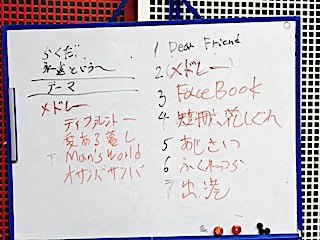 らくだ
永遠という
テーマ
メドレー
ディファレント
愛ある暮し
Man's World
オサンバサンバ
1 Dear Friend
2 (メドレー)
3 FaceBook
4 短冊、花しぐれ
5 あじさい
6 ふくれっつら
7 出港